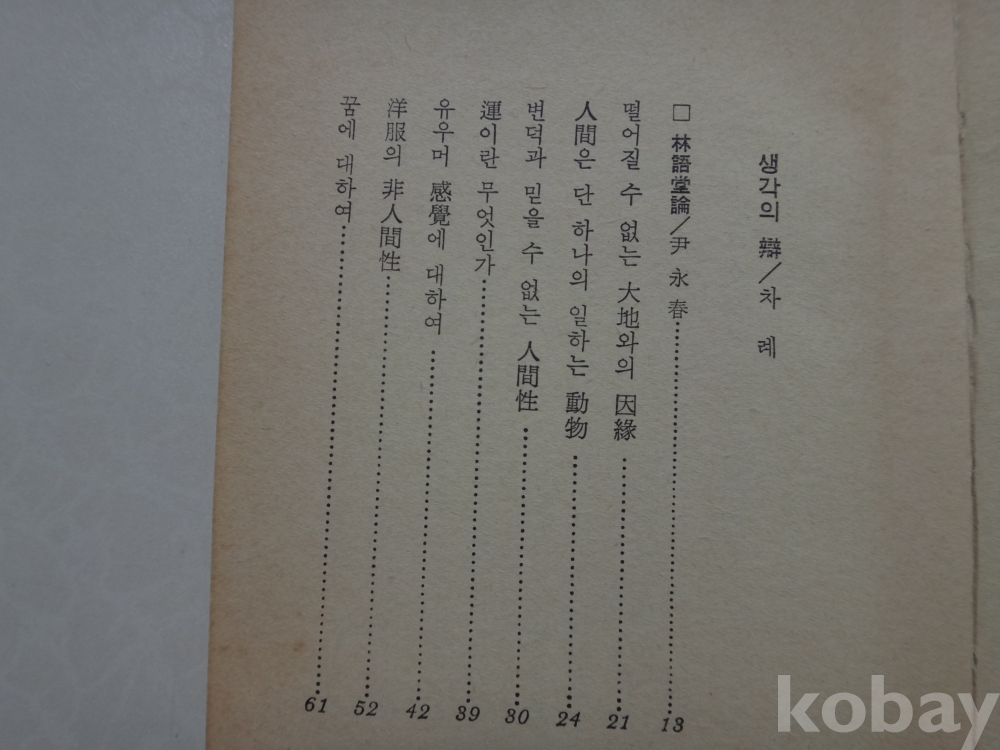 생각의 辯/차 례
□ 林語堂論/尹 永 春 13
떨어질 수 없는 大地와의 因緣 21
人間은 단 하나의 일하는 動物 24
변덕과 믿을 수 없는 人間性 30
運이란 무엇인가 39
유우머 感覺에 대하여 42
洋服의 非人間性 52
꿈에 대하여 61
kobay